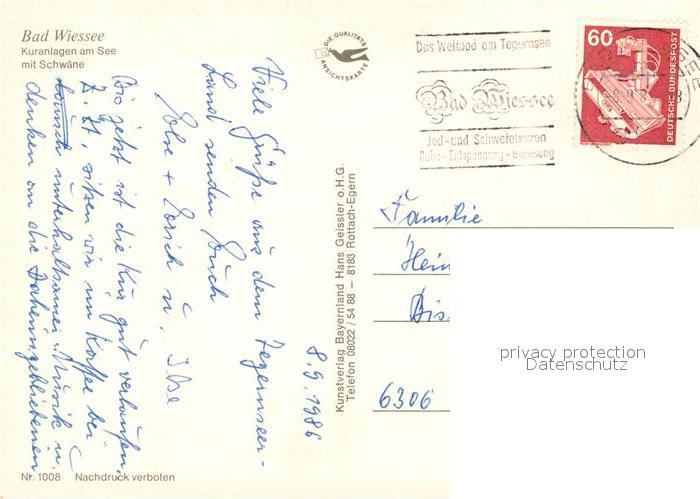 Bad Wiessee
Kuranlagen am See
mit Schwäne
DIE QUALITÄTS
ANSICHTSKARTE
Das Weltbad am Tegernsee
Bad Wiessee
Jod- und Schwefelkuren
Ruhe - Entspannung - Genesung
60
DEUTSCHE BUNDESPOST
8.9.1986
Viele Grüße aus dem Tegernseer-
Land senden Euch
Else + Erich u. Ilse
Bis jetzt ist die Kur gut verlaufen,
z. Zt. sitzen wir im Kaffee bei
unterhaltsamer Musik u.
denken an die Daheimgebliebenen
Kunstverlag Bayernland Hans Geissler o.H.G.
Telefon 08022 / 54 88 – 8183 Rottach-Egern
Familie
Hein
Bis
6306
privacy protection
Datenschutz
Nr. 1008 Nachdruck verboten